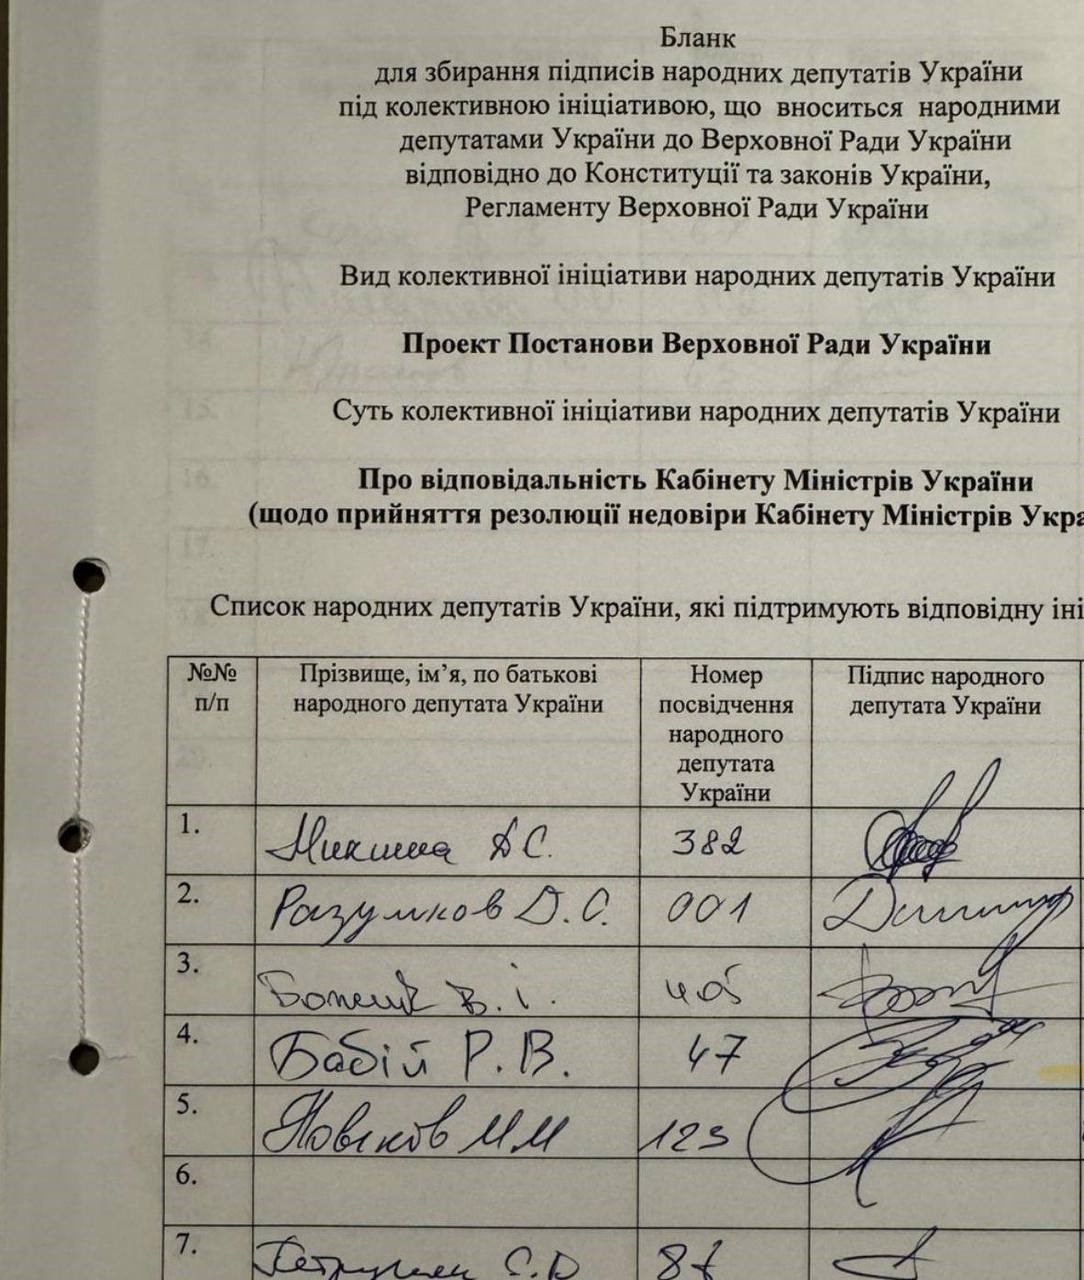 Бланк
для збирання підписів народних депутатів України
під колективною ініціативою, що вноситься народними
депутатами України до Верховної Ради України
відповідно до Конституції та законів України,
Регламенту Верховної Ради України
Вид колективної ініціативи народних депутатів України
Проект Постанови Верховної Ради України
Суть колективної ініціативи народних депутатів України
Про відповідальність Кабінету Міністрів України
(щодо прийняття резолюції недовіри Кабінету Міністрів Укра
Список народних депутатів України, які підтримують відповідну іні
№№ п/п
Прізвище, ім’я, по батькові народного депутата України
Номер посвідчення народного депутата України
Підпис народного депутата України
1. Микиша Д С. 382
2. Разумков Д. О. 001
3. В. І. 405
4. Бабій Р. В. 47
5. М М 123
6.
7. С. 87